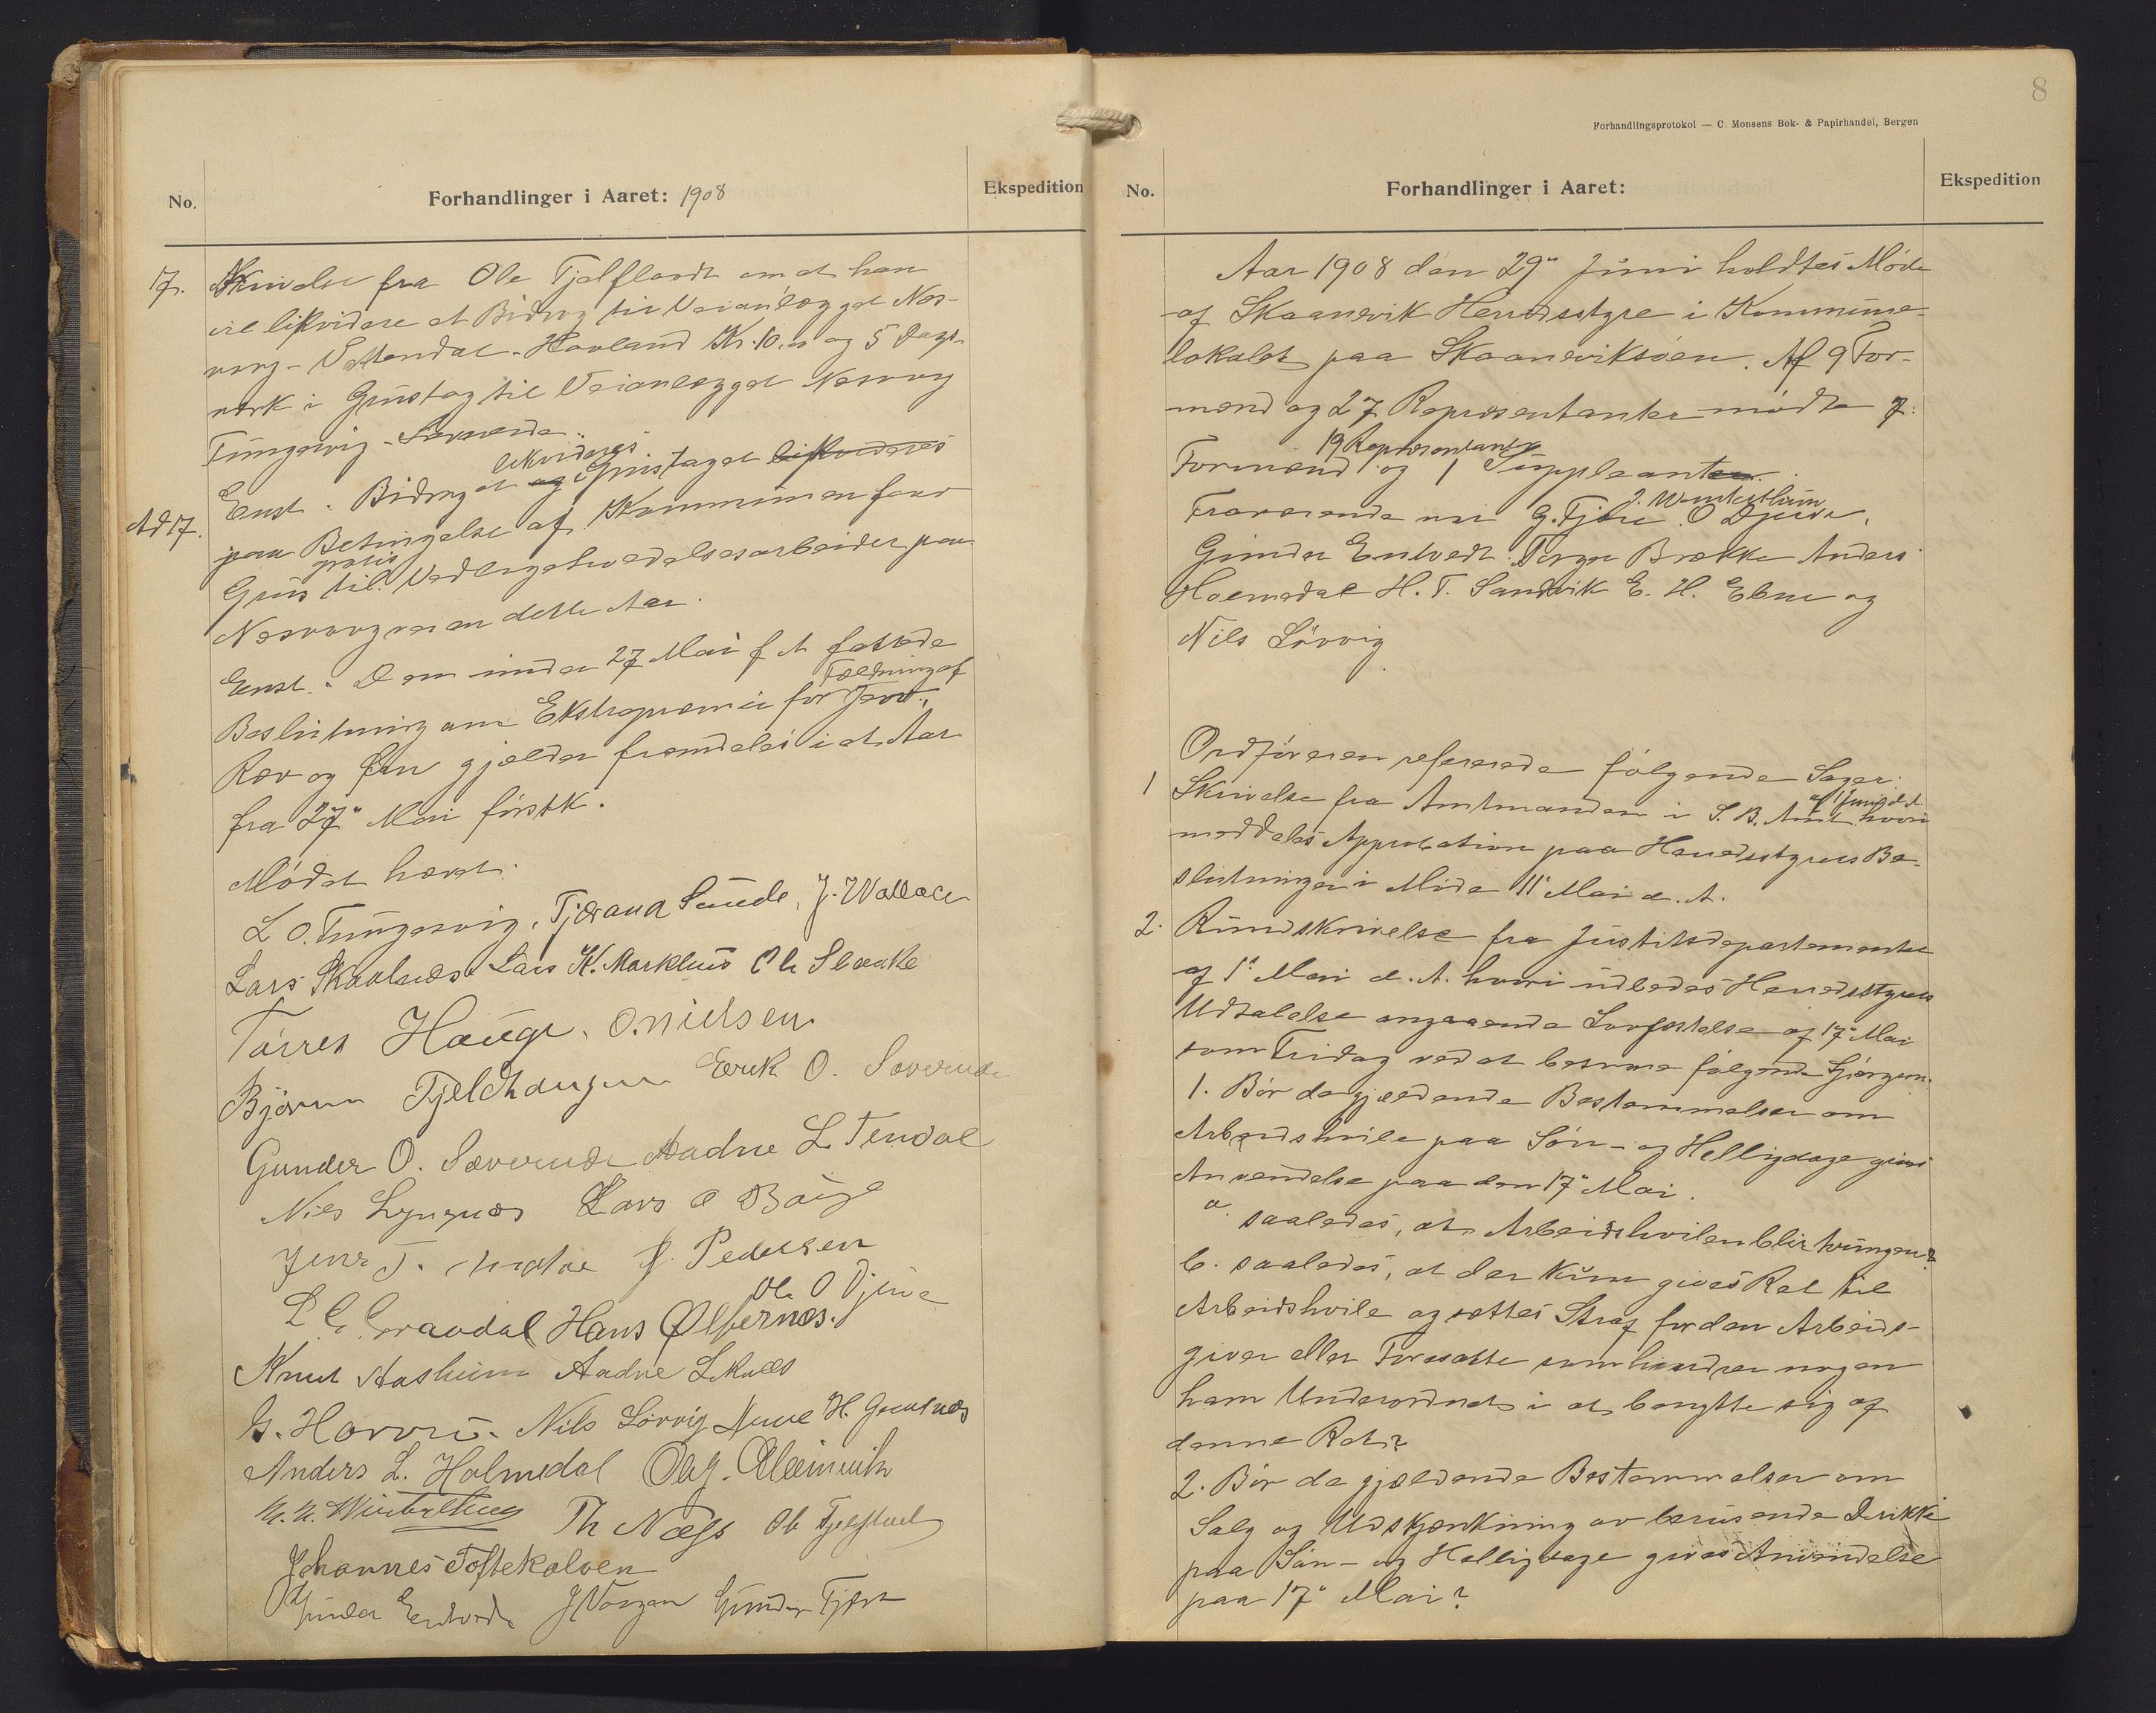 No. Forhandlinger i Aaret: 1908 Ekspedition
17. Skrivelse fra Ole Fjelflaadt om at han
vil likvidere et Bidrag til Veianlægget Næs-
vaag - Vattendal - Havland Kr. 10.00 og 5 Dags-
værk i Grustag til Veianlægget Næsvaag
Tungesvig - Sævareide.
Enst. Bidraget likvideres og i Grustaget likvideres
Ad 17. paa Betingelse af Kommunen faar
Grus gratis til Vedligeholdelsesarbeider paa
Næsvaagveien dette Aar.
Enst. Den under 27 Mai f A fattede
Beslutning om Ekstrapræmie for Fældning af
Ræv og Ørn gjælder fremdeles i et Aar
fra 27de Mai førstk.
Mødet hævet.
L. O. Tungesvig. Tjærand Sunde, J. Wallace
Lars Skaalnæs Lars K. Markhus Ole Slaake
Tørres Hauge. O. Nielsen
Bjørn Fjeldhaugen Eerik O. Sævereide
Gunder O. Sævereide Aadne L Tendal
Nils Lyngnæs Lars O Bauge
Jens T. J. Pedersen
L G Gravdal Hans Ølfernæs. Ole O Djuve
Knut Aasheim Aadne L Næs
G. Nils Sørvig H.
Anders L. Holmedal Olaf. Aleinevik
Th Næss Ole Fjelflaadt
Johannes Toftekalven
Gunder Entvedt J Gunder Fjære
8
Forhandlingsprotokol — C. Monsens Bok- & Papirhandel, Bergen
No. Forhandlinger i Aaret: Ekspedition
Aar 1908 den 29de Juni holdtes Møde
af Skaanevik Herredsstyre i Kommune-
lokalet paa Skaaneviksøen. Af 9 For-
mænd og 27 Repræsentanter mødte 7
Formænd 19 Repræsentanter og 1 Suppleanter.
Fraværende var G. Fjære J. Winterthun O Djuve,
Gunder Entvedt. Torger Brekke Anders
Holmedal H. T. Sandvik E. H. Ebne og
Nils Sørvig
Ordføreren refererede følgende Sager.
1 Skrivelse fra Amtmanden i S. B. Amt af 1 Juni d. A. hvori
meddeles Approbation paa Herredsstyrets Be-
slutninger i Møde 11te Mai d. A.
2. Rundskrivelse fra Justitsdepartementet
af 1ste Mai d. A. hvori udbedes Herredsstyrets
Udtalelse angaaende Lovfæstelse af 17de Mai
som Fridag ved at besvare følgende Spørgsm.
1. Bør de gjældende Bestemmelser om
Arbeidshvile paa Søn- og Helligdage gives
Anvendelse paa den 17de Mai.
a. saaledes, at Arbeidshvilen blir tvungen?
b. saaledes, at der kun gives Ret til
Arbeidshvile og sættes Straf for den Arbeids-
giver eller Foresatte som hindrer nogen
ham Underordnet i at benytte sig af
denne Ret?
2. Bør de gjældende Bestemmelser om
Salg og Udskjænkning av berusende Drikke
paa Søn- og Helligdage gives Anvendelse
paa 17de Mai?